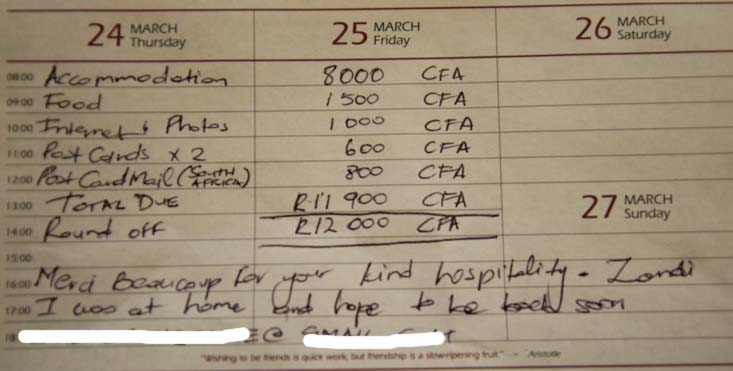 24 MARCH Thursday
25 MARCH Friday
26 MARCH Saturday
08:00 Accommodation 8000 CFA
09:00 Food 1 500 CFA
10:00 Internet & Photos 1 000 CFA
11:00 Post Cards x 2 600 CFA
12:00 Post Card Mail (SOUTH AFRICA) 800 CFA
13:00 TOTAL DUE R11 900 CFA
27 MARCH Sunday
14:00 Round off R12 000 CFA
15:00
16:00 Merci Beaucoup for your kind hospitality - Zandi
17:00 I was at home and hope to be back soon
18: E@
"Wishing to be friends is quick work, but friendship is a slow-ripening fruit." ~ Aristotle